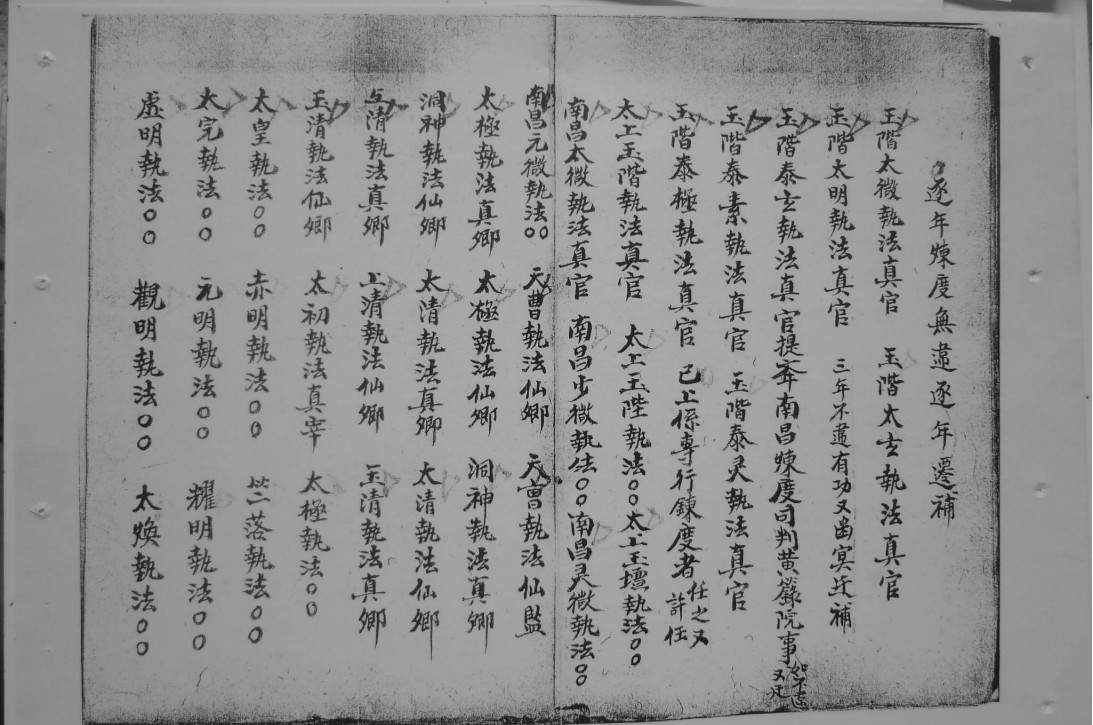 逐年煉度無遣逐年遷補
玉階太微執法真官 玉階太玄執法真官
玉階太明執法真官 三年不遣有功又凾冥迁補
玉階泰玄執法真官提舉南昌煉度司判黄籙院事 如不遣又迁
玉階泰素執法真官 玉階泰灵執法真官
玉階泰極執法真官 已上係專行鍊度者 任之又許任
太上玉階執法真官 太上玉陛執法〇〇太上玉壇執法〇〇
南昌太微執法真官 南昌少微執法〇〇南昌灵微執法〇〇
南昌元微執法〇〇 天曹執法仙卿 天曹執法仙監
太極執法真卿 太極執法仙卿 洞神執法真卿
洞神執法仙卿 太清執法真卿 太清執法仙卿
上清執法真卿 上清執法仙卿 玉清執法真卿
玉清執法仙卿 太初執法真宰 太極執法〇〇
太皇執法〇〇 赤明執法〇〇 落執法〇〇
太完執法〇〇 元明執法〇〇 耀明執法〇〇
虛明執法〇〇 觀明執法〇〇 太煥執法〇〇